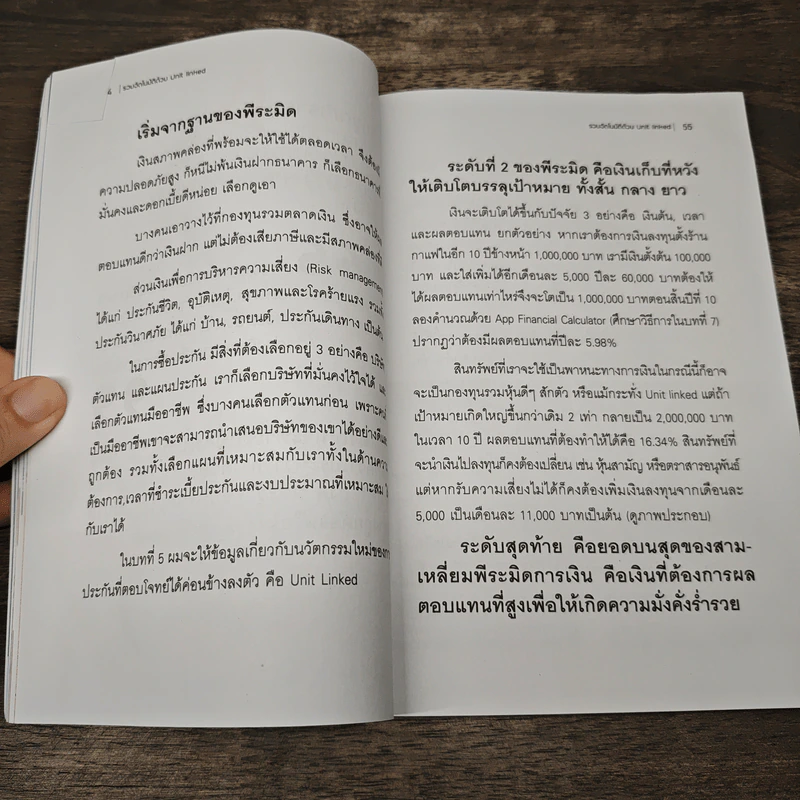 รวยอัตโนมัติด้วย Unit linked
เริ่มจากฐานของพีระมิด
เงินสภาพคล่องที่พร้อมจะให้ใช้ได้ตลอดเวลา จึงต้องมี
ความปลอดภัยสูง ก็หนีไม่พ้นเงินฝากธนาคาร ก็เลือกธนาคารที่
มั่นคงและดอกเบี้ยดีหน่อย เลือกดูเอา
บางคนเอาวางไว้ที่กองทุนรวมตลาดเงิน ซึ่งอาจให้ผล
ตอบแทนดีกว่าเงินฝาก แต่ไม่ต้องเสียภาษีและมีสภาพคล่อง
ส่วนเงินเพื่อการบริหารความเสี่ยง (Risk management
ได้แก่ ประกันชีวิต, อุบัติเหตุ, สุขภาพและโรคร้ายแรง รวมทั้ง
ประกันวินาศภัย ได้แก่ บ้าน, รถยนต์, ประกันเดินทาง เป็นต้น
ในการซื้อประกัน มีสิ่งที่ต้องเลือกอยู่ 3 อย่างคือ บริษัท
ตัวแทน และแผนประกัน เราก็เลือกบริษัทที่มั่นคงไว้ใจได้ และ
เลือกตัวแทนมืออาชีพ ซึ่งบางคนเลือกตัวแทนก่อน เพราะคน
เป็นมืออาชีพเขาจะสามารถนำเสนอบริษัทของเขาได้อย่างดีและ
ถูกต้อง รวมทั้งเลือกแผนที่เหมาะสมกับเราทั้งในด้านความ
ต้องการ,เวลาที่ชำระเบี้ยประกันและงบประมาณที่เหมาะสม
กับเราได้
ในบทที่ 5 ผมจะให้ข้อมูลเกี่ยวกับนวัตกรรมใหม่ของการ
ประกันที่ตอบโจทย์ได้ค่อนข้างลงตัว คือ Unit Linked
รวยอัตโนมัติด้วย Unit linked | 55
ระดับที่ 2 ของพีระมิด คือเงินเก็บที่หวัง
ให้เติบโตบรรลุเป้าหมาย ทั้งสั้น กลาง ยาว
เงินจะเติบโตได้ขึ้นกับปัจจัย 3 อย่างคือ เงินต้น, เวลา
และผลตอบแทน ยกตัวอย่าง หากเราต้องการเงินลงทุนตั้งร้าน
กาแฟในอีก 10 ปีข้างหน้า 1,000,000 บาท เรามีเงินตั้งต้น 100,000
บาท และใส่เพิ่มได้อีกเดือนละ 5,000 ปีละ 60,000 บาทต้องให้
ได้ผลตอบแทนเท่าไหร่จึงจะโตเป็น 1,000,000 บาทตอนสิ้นปีที่ 10
ลองคำนวณด้วย App Financial Calculator (ศึกษาวิธีการในบทที่ 7)
ปรากฏว่าต้องมีผลตอบแทนที่ปีละ 5.98%
สินทรัพย์ที่เราจะใช้เป็นพาหนะทางการเงินในกรณีนี้ก็อาจ
จะเป็นกองทุนรวมหุ้นดีๆ สักตัว หรือแม้กระทั่ง Unit linked แต่ถ้า
เป้าหมายเกิดใหญ่ขึ้นกว่าเดิม 2 เท่า กลายเป็น 2,000,000 บาท
ในเวลา 10 ปี ผลตอบแทนที่ต้องทำให้ได้คือ 16.34% สินทรัพย์ที่
จะนำเงินไปลงทุนก็คงต้องเปลี่ยน เช่น หุ้นสามัญ หรือตราสารอนุพันธ์
แต่หากรับความเสี่ยงไม่ได้ก็คงต้องเพิ่มเงินลงทุนจากเดือนละ
5,000 เป็นเดือนละ 11,000 บาทเป็นต้น (ดูภาพประกอบ)
ระดับสุดท้าย คือยอดบนสุดของสาม-
เหลี่ยมพีระมิดการเงิน คือเงินที่ต้องการผล
ตอบแทนที่สูงเพื่อให้เกิดความมั่งคั่งร่ำรวย